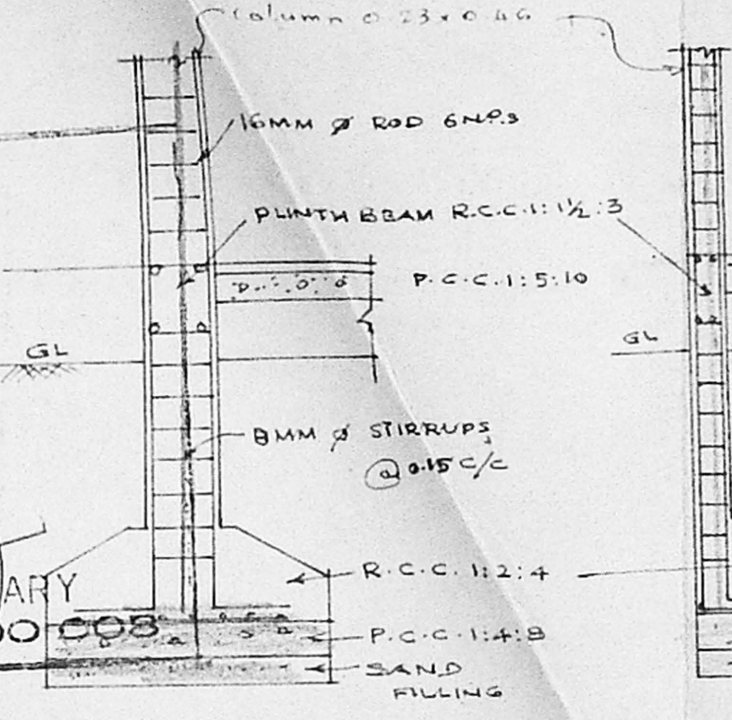 Column 0.23 x 0.46
16MM Ø ROD 6NO.S
PLINTH BEAM R.C.C.1:1½:3
P.C.C.1:5:10
GL
GL
8MM Ø STIRRUPS
@ 0.15 C/C
R.C.C. 1:2:4
ARY
P.C.C.1:4:8
SAND
FILLING